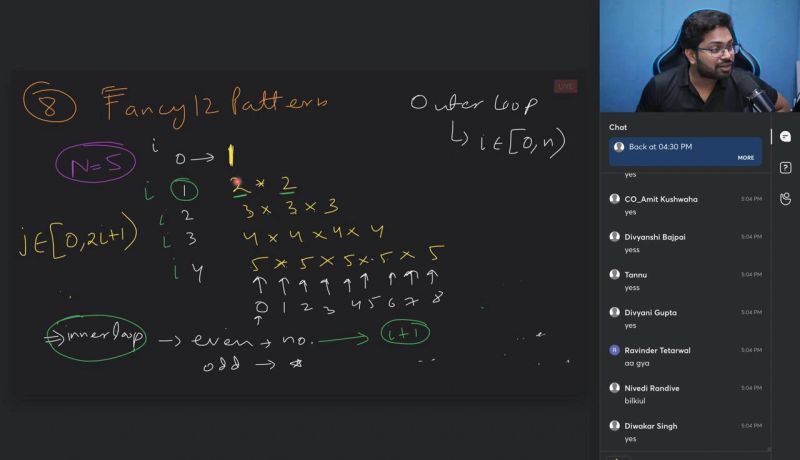 8 Fancy12 Pattern
LIVE
Outer loop
↳ i∈[0,n)
N=5
i
0 → 1
i 1 2 * 2
i 2 3 * 3 * 3
i 3 4 * 4 * 4 * 4
i 4 5 * 5 * 5 * 5 * 5
j∈[0,2i+1)
↑ ↑ ↑ ↑ ↑ ↑ ↑ ↑ ↑
0 1 2 3 4 5 6 7 8
⇒ inner loop → even → no. → i+1
odd → *
Chat
Back at 04:30 PM
MORE
yes
CO_Amit Kushwaha 5:04 PM
yes
Divyanshi Bajpai 5:04 PM
yess
Tannu 5:04 PM
yess
Divyani Gupta 5:04 PM
yes
R Ravinder Tetarwal 5:04 PM
aa gya
Nivedi Randive 5:04 PM
bilkiul
Diwakar Singh 5:04 PM
yes